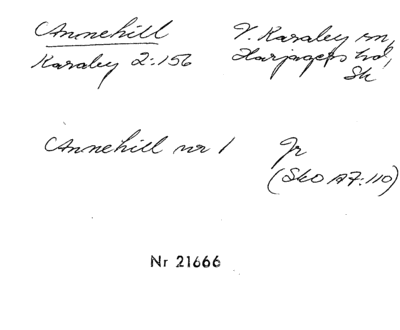 Annehill V. Karaby sn,
Karaby 2:156 Harjagers hd,
Sk
Annehill nr 1 Jr
(SkO A7:110)
Nr 21666